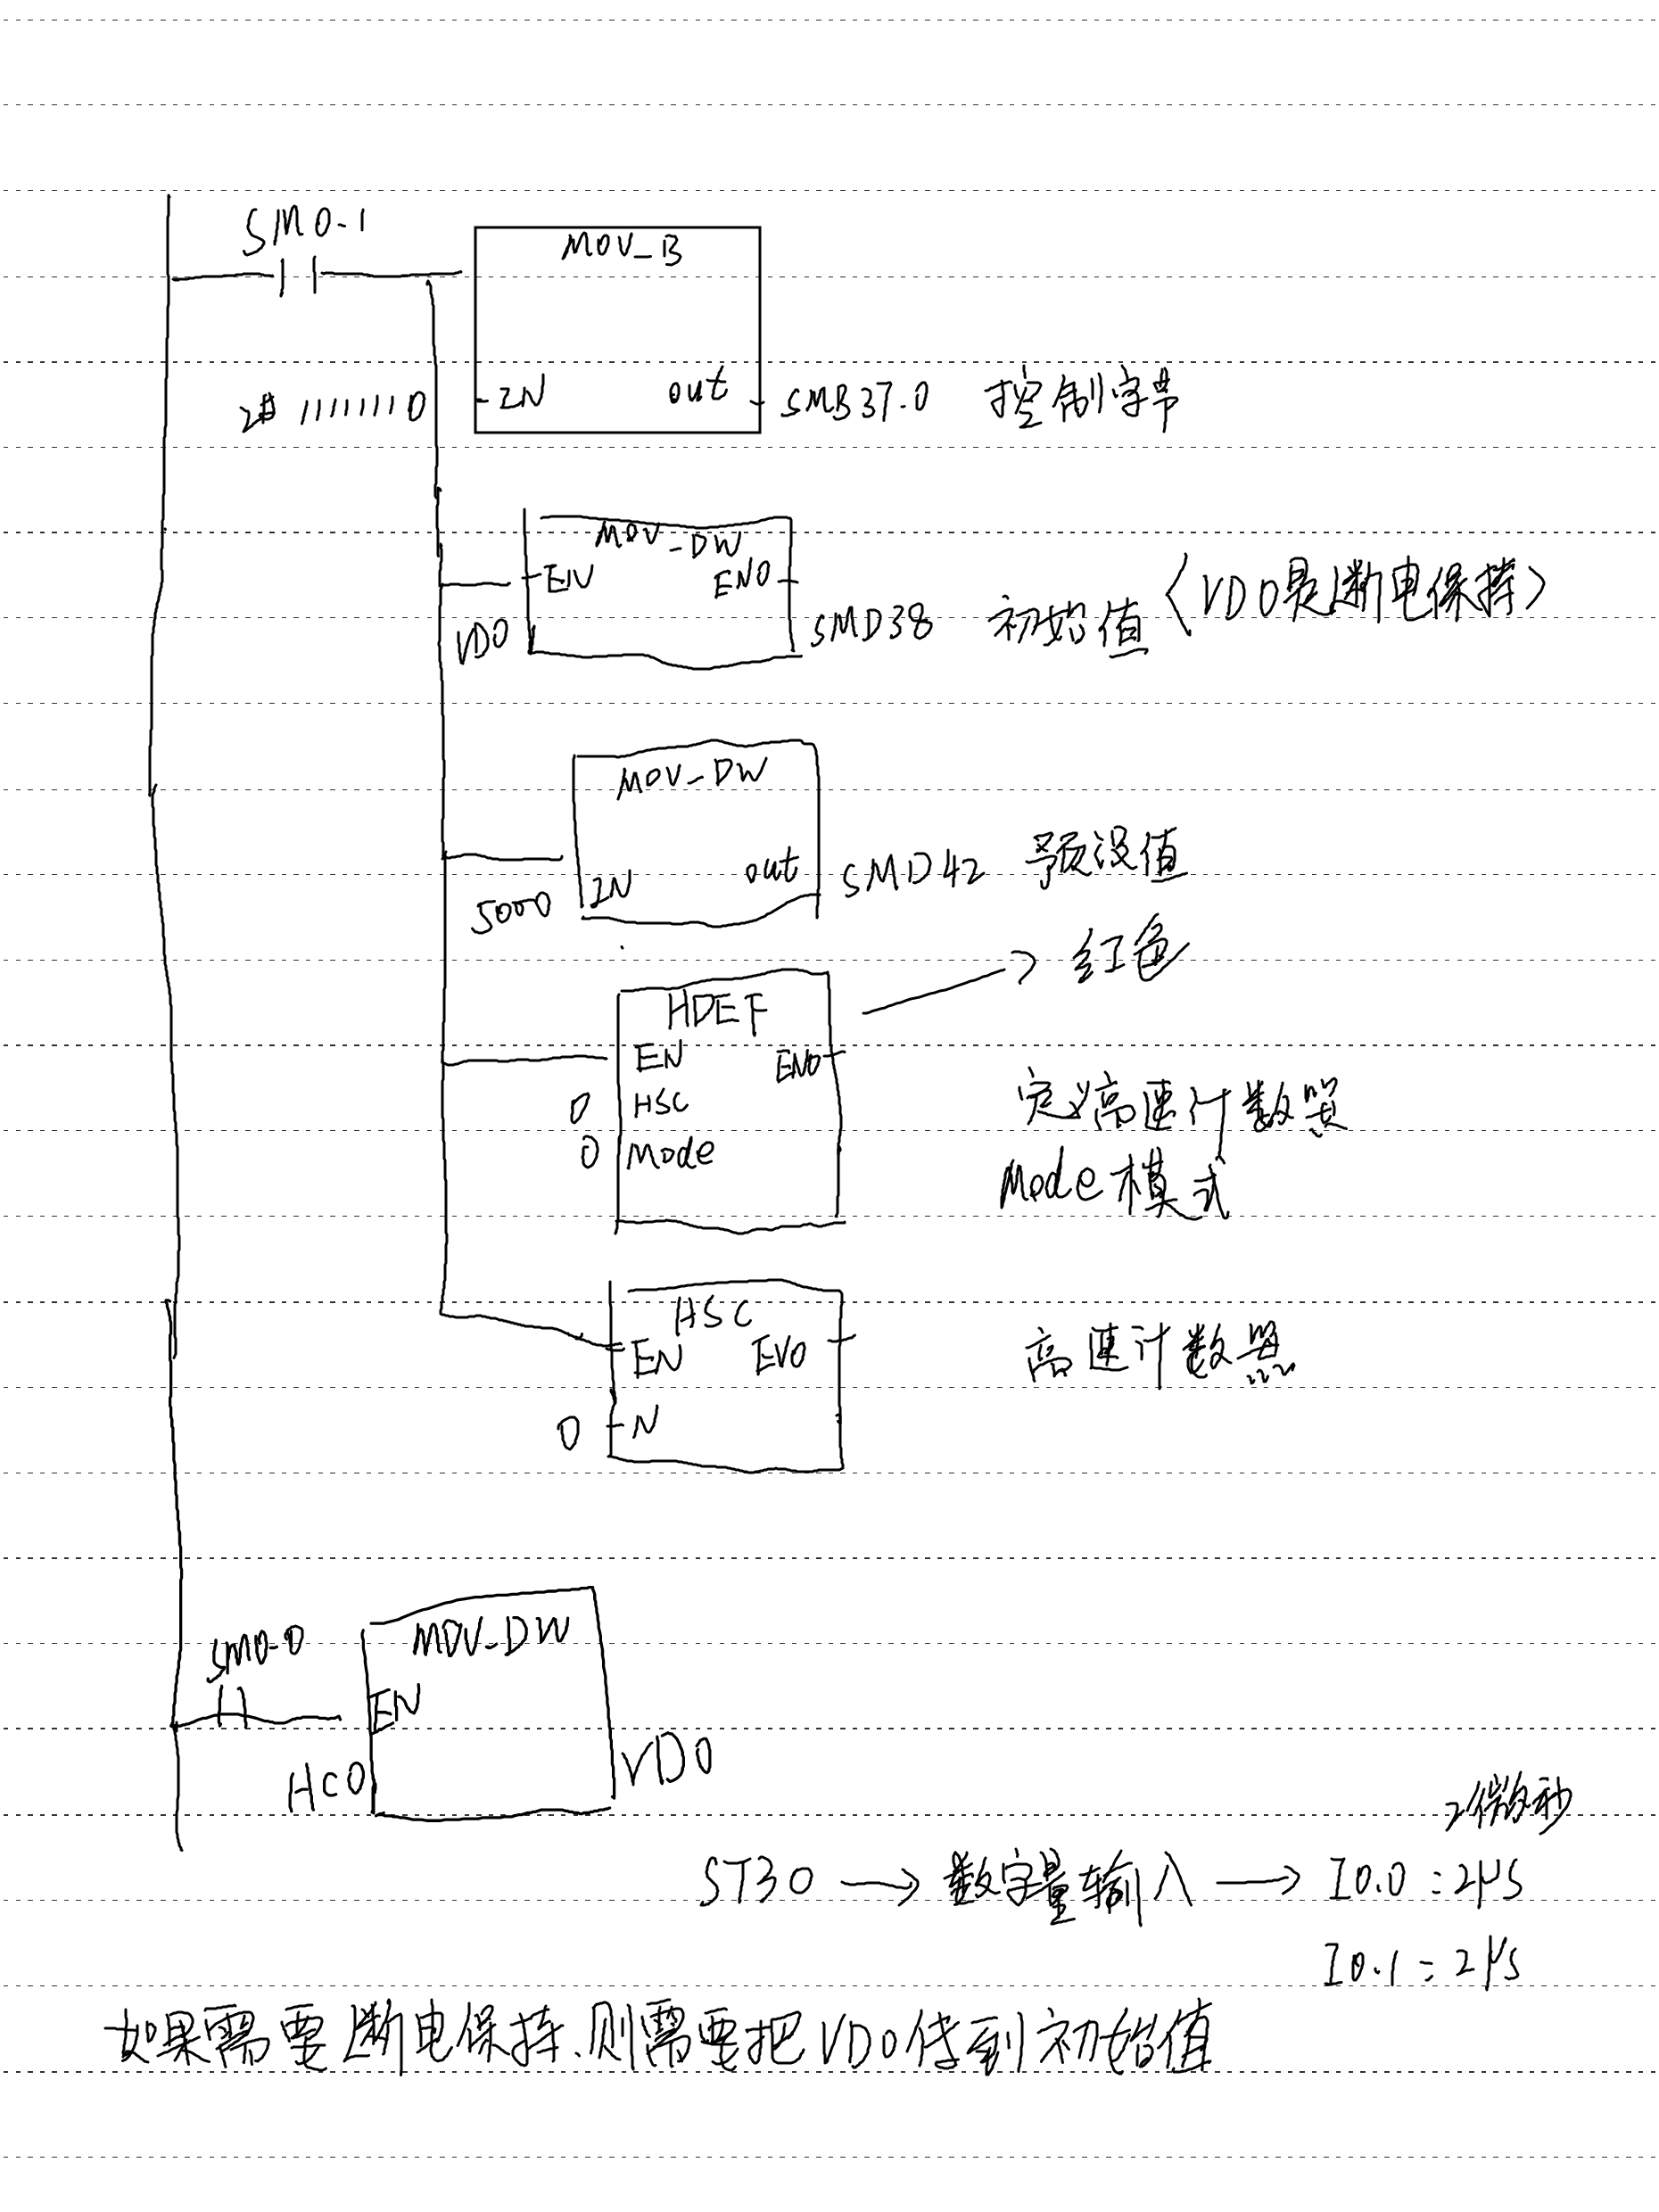 SM0.1
MOV_B
2# 11111110 IN out SMB37.0 控制字节
MOV_DW
EN ENO
VD0 SMD38 初始值〈VD0是断电保持〉
MOV_DW
5000 IN out SMD42 预设值
红色
HDEF
EN ENO
0 HSC
0 Mode
定义高速计数器
Mode模式
HSC
EN EVO
0 N
高速计数器
SM0.0
MOV_DW
EN
HC0 VD0
2微秒
ST30 → 数字量输入 → I0.0:2μs
I0.1:2μs
如果需要断电保持.则需要把VD0传到初始值